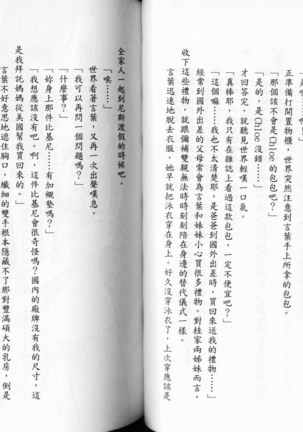 正準備打開置物櫃，世界突然注意到言葉手上所拿的包包。
「那個該不會是Chloe的包包吧？」
「是的，是Chloe沒錯……」
才回答完，就聽見世界輕嘆一口氣。
「真棒耶，我只有在雜誌上看過這款包包，一定不便宜吧？」
「這個嘛，我也不太清楚耶，是爸爸到國外出差時，買回來送我的禮物……」
經常到國外出差的父母常會為言葉和妹妹小心買很多禮物。對桂家兩姊妹而言，
收下這些禮物，就跟彌補雙親無法時時刻刻陪在身邊的替代儀式一樣。
言葉迅速地脫去衣服，她早就把泳衣穿在身上。好久沒穿泳衣了，上次穿應該是
全家人一起到尼斯渡假的時候吧。
「唉……」
世界看著言葉，又再一次出聲嘆息。
「我可以再問一個問題嗎？」
「什麼事？」
「妳身上那件比基尼……有加襯墊嗎？」
「我想應該沒有吧。啊，這件比基尼會很奇怪嗎？國內的廠牌沒有我的尺寸，這
是我拜託媽媽從美國幫我買回來的。」
言葉不好意思地遮住胸口，纖細的雙手根本隱藏不了那對豐滿碩大的乳房，倒是